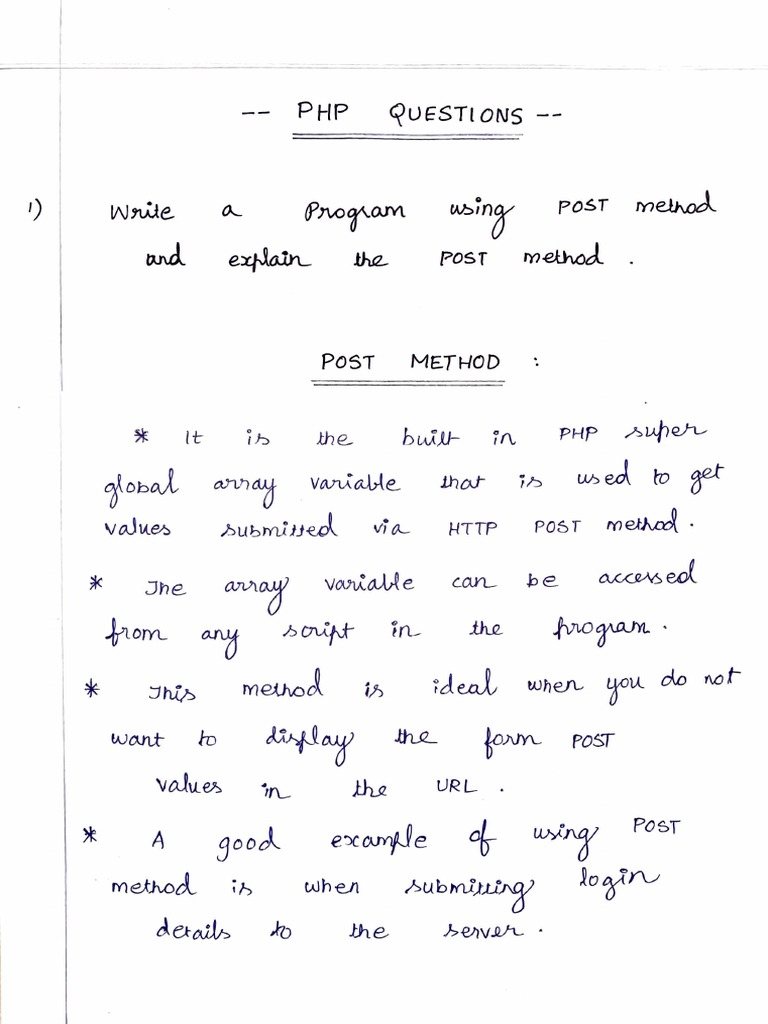 -- PHP QUESTIONS --
1) Write a Program using POST method
and explain the POST method .
POST METHOD :
* It is the built in PHP super
global array variable that is used to get
values submitted via HTTP POST method.
* The array variable can be accessed
from any script in the program.
* This method is ideal when you do not
want to display the form POST
values in the URL .
* A good example of using POST
method is when submitting login
details to the server.